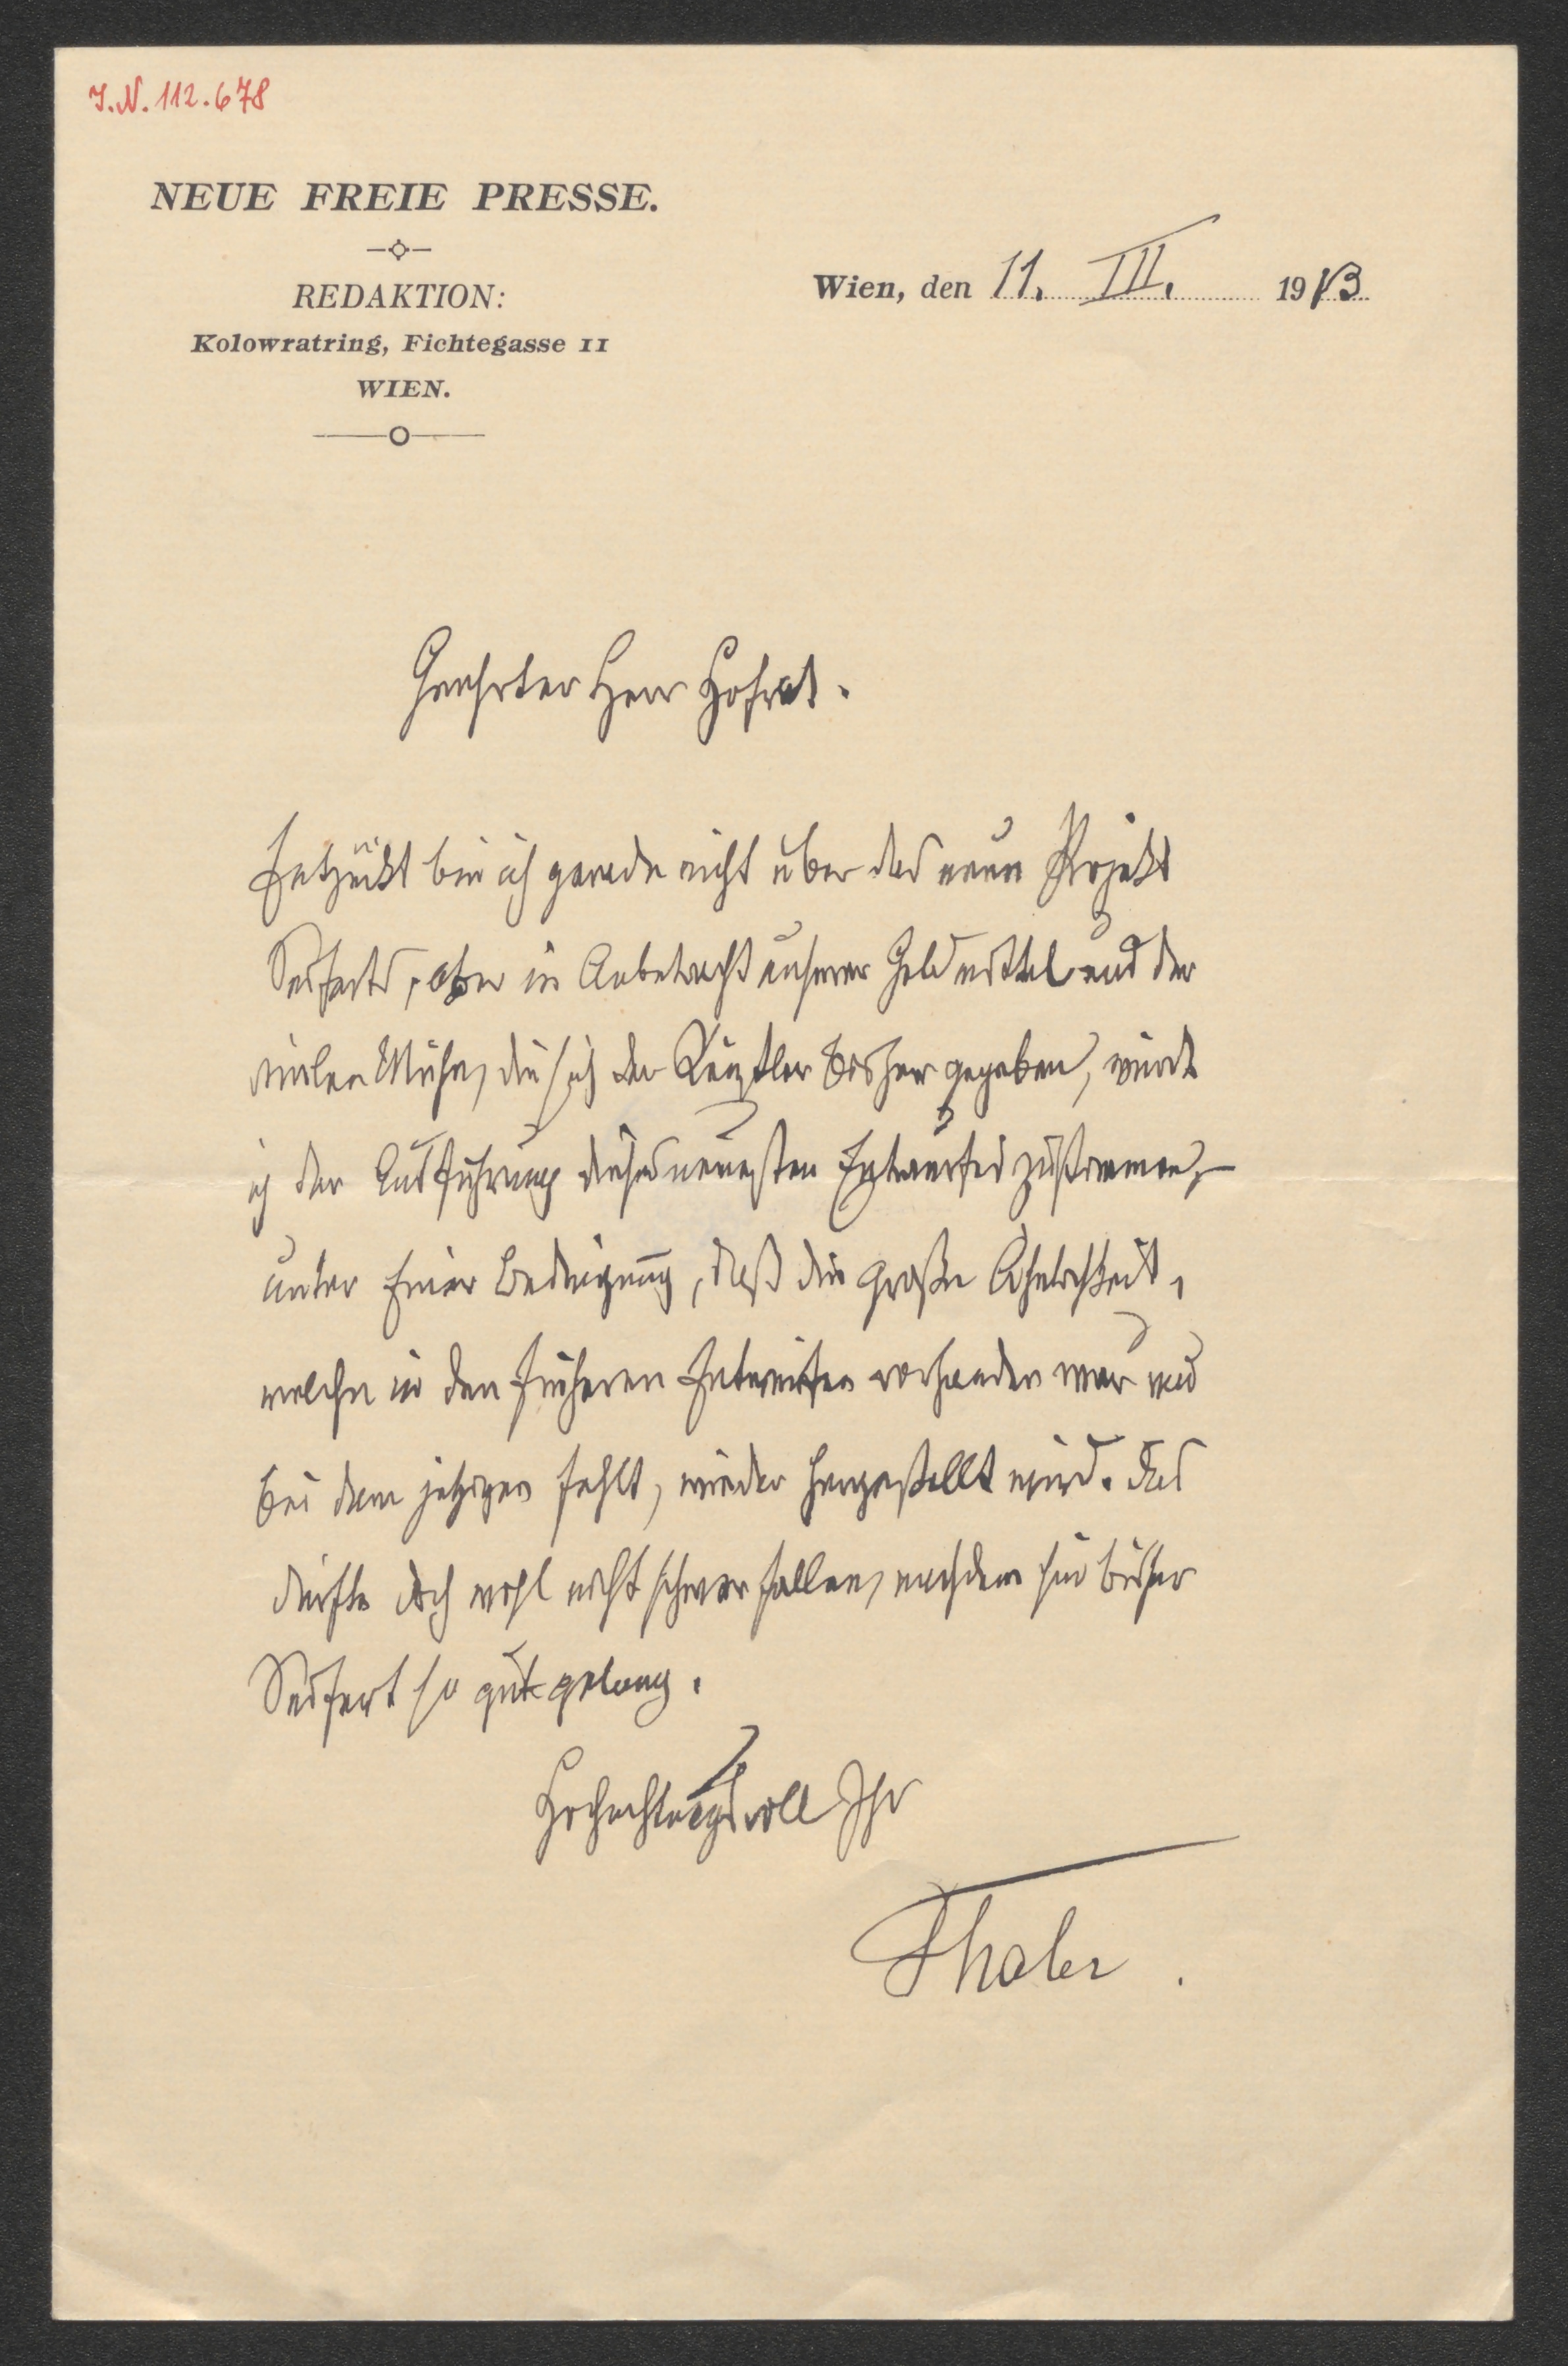 J.N. 112.678
NEUE FREIE PRESSE.
REDAKTION:
Kolowratring, Fichtegasse 11
WIEN.
Wien, den 11. III. 1913
Geehrter Herr Hofrat.
Entzückt bin ich gerade nicht über das neue Projekt
Seiferts, aber in Anbetracht unserer Geldmittel und der
vielen Mühe, die sich der Künstler bisher gegeben, würde
ich der Ausführung dieses neuesten Entwurfes zustimmen,
unter Einer Bedingung, daß die große Ähnlichkeit,
welche in den früheren Entwürfen vorhanden war und
bei dem jetzigen fehlt, wieder hergestellt wird. Das
dürfte doch wohl nicht schwer fallen, nachdem sie bisher
Seifert so gut gelang.
Hochachtungsvoll Ihr
Thaler.